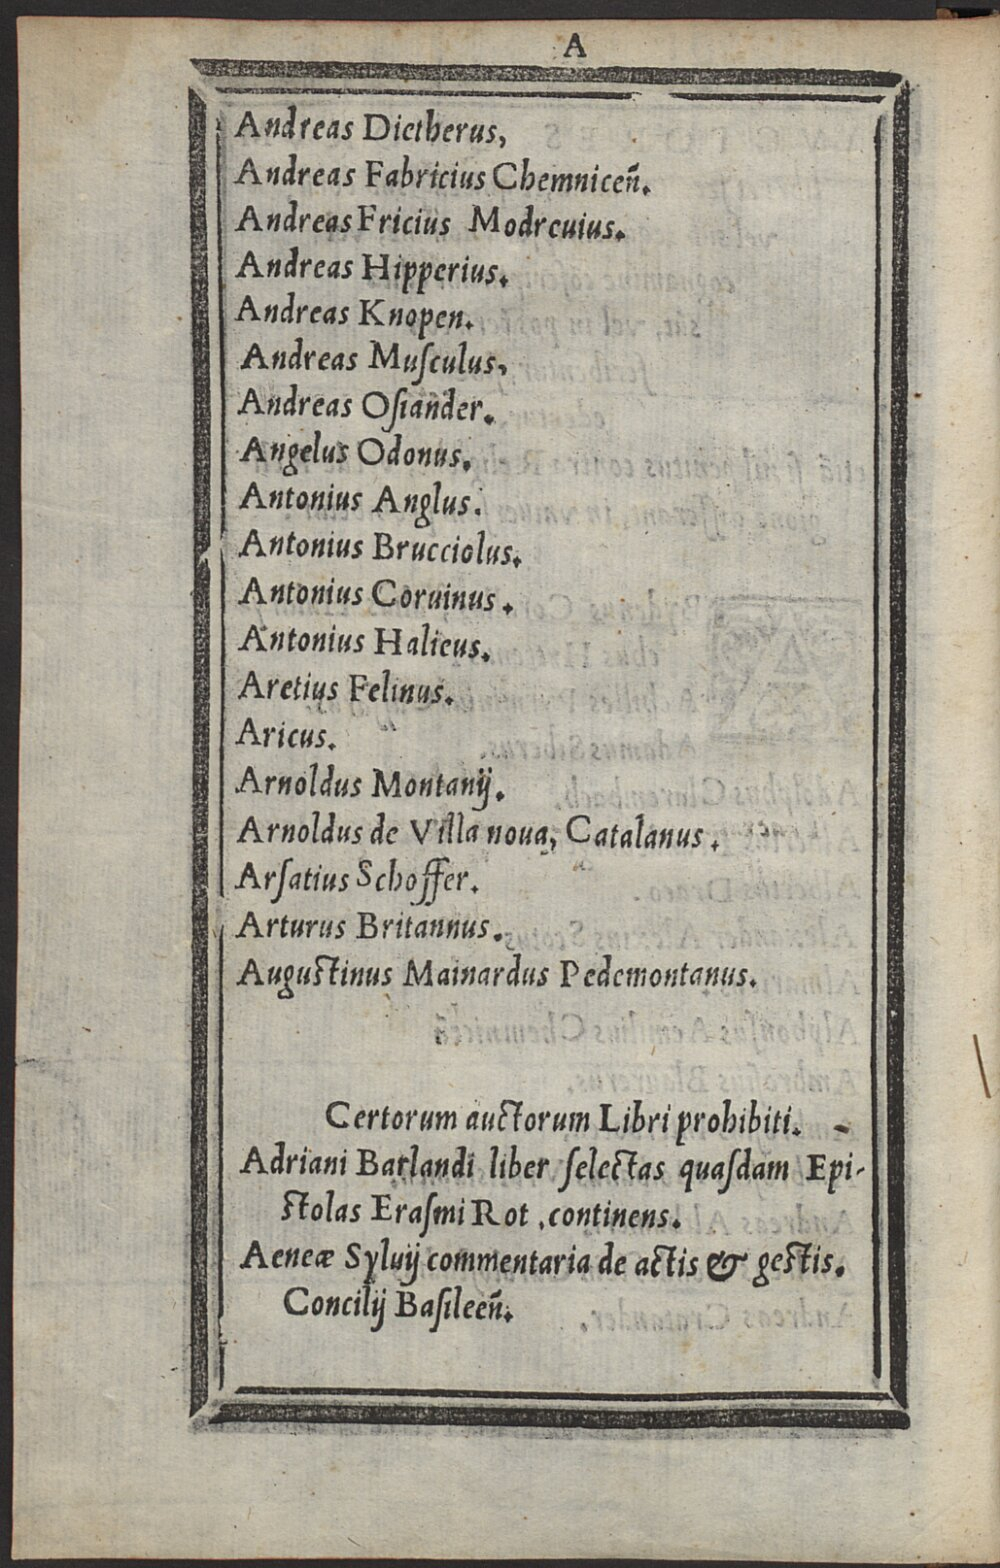 A
Andreas Dietherus,
Andreas Fabricius Chemniceñ.
Andreas Fricius Modreuius.
Andreas Hipperius.
Andreas Knopen.
Andreas Muſculus,
Andreas Oſiander.
Angelus Odonus.
Antonius Anglus.
Antonius Brucciolus.
Antonius Coruinus.
Antonius Halieus.
Aretius Felinus.
Aricus.
Arnoldus Montanij.
Arnoldus de Villa noua, Catalanus.
Arſatius Schoffer.
Arturus Britannus.
Auguſtinus Mainardus Pedemontanus.
Certorum auctorum Libri prohibiti.
Adriani Barlandi liber ſelectas quaſdam Epi-
ſtolas Eraſmi Rot, continens.
Aeneæ Syluij commentaria de actis & geſtis.
Concilij Baſileeñ.